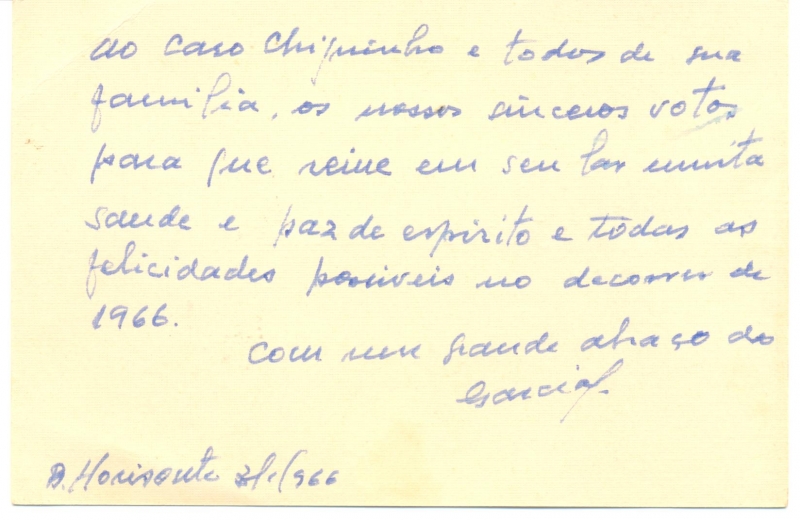 ao caro Chiquinho e todos de sua
familia, os nossos sinceros votos
para que reine em seu lar muita
saude e paz de espirito e todas as
felicidades possiveis no decorrer de
1966.
com um grande abraço do
Garcia
B. Horisonte 3/1/966